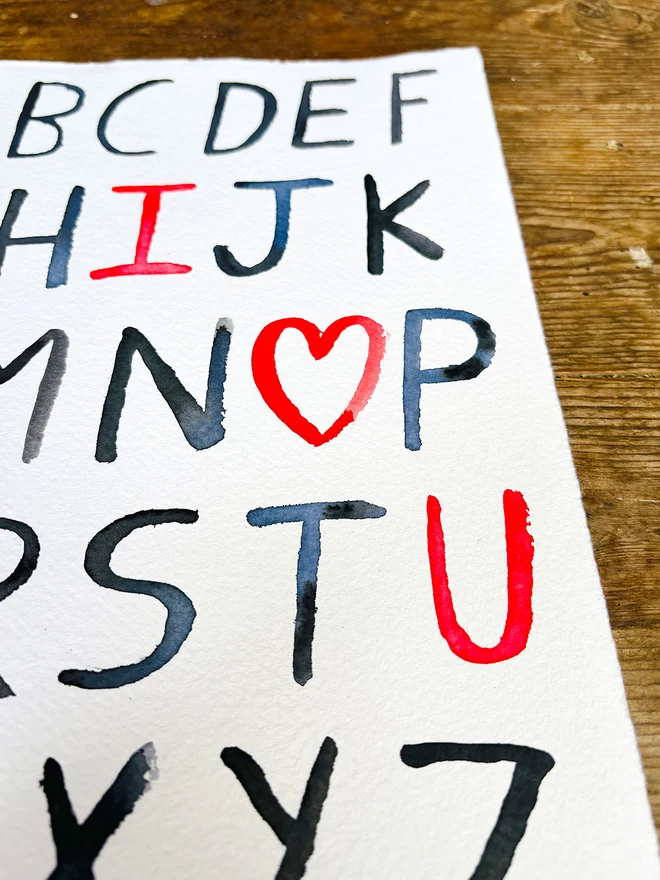 BCDEF
HIJK
MN♡P
RSTU
XYZ